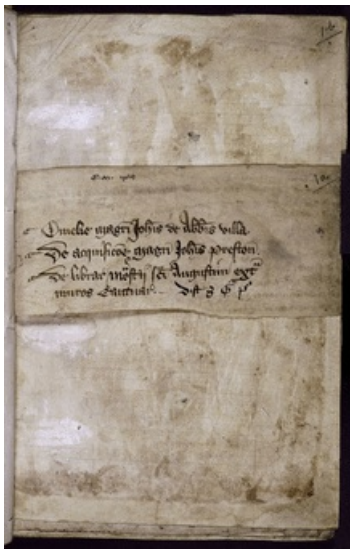 Omelie magri Johis de Abbis villa
De acquisicoe magri Johis Preston
De librar mostij sci Augustini extra
muros Cantuar. Dist